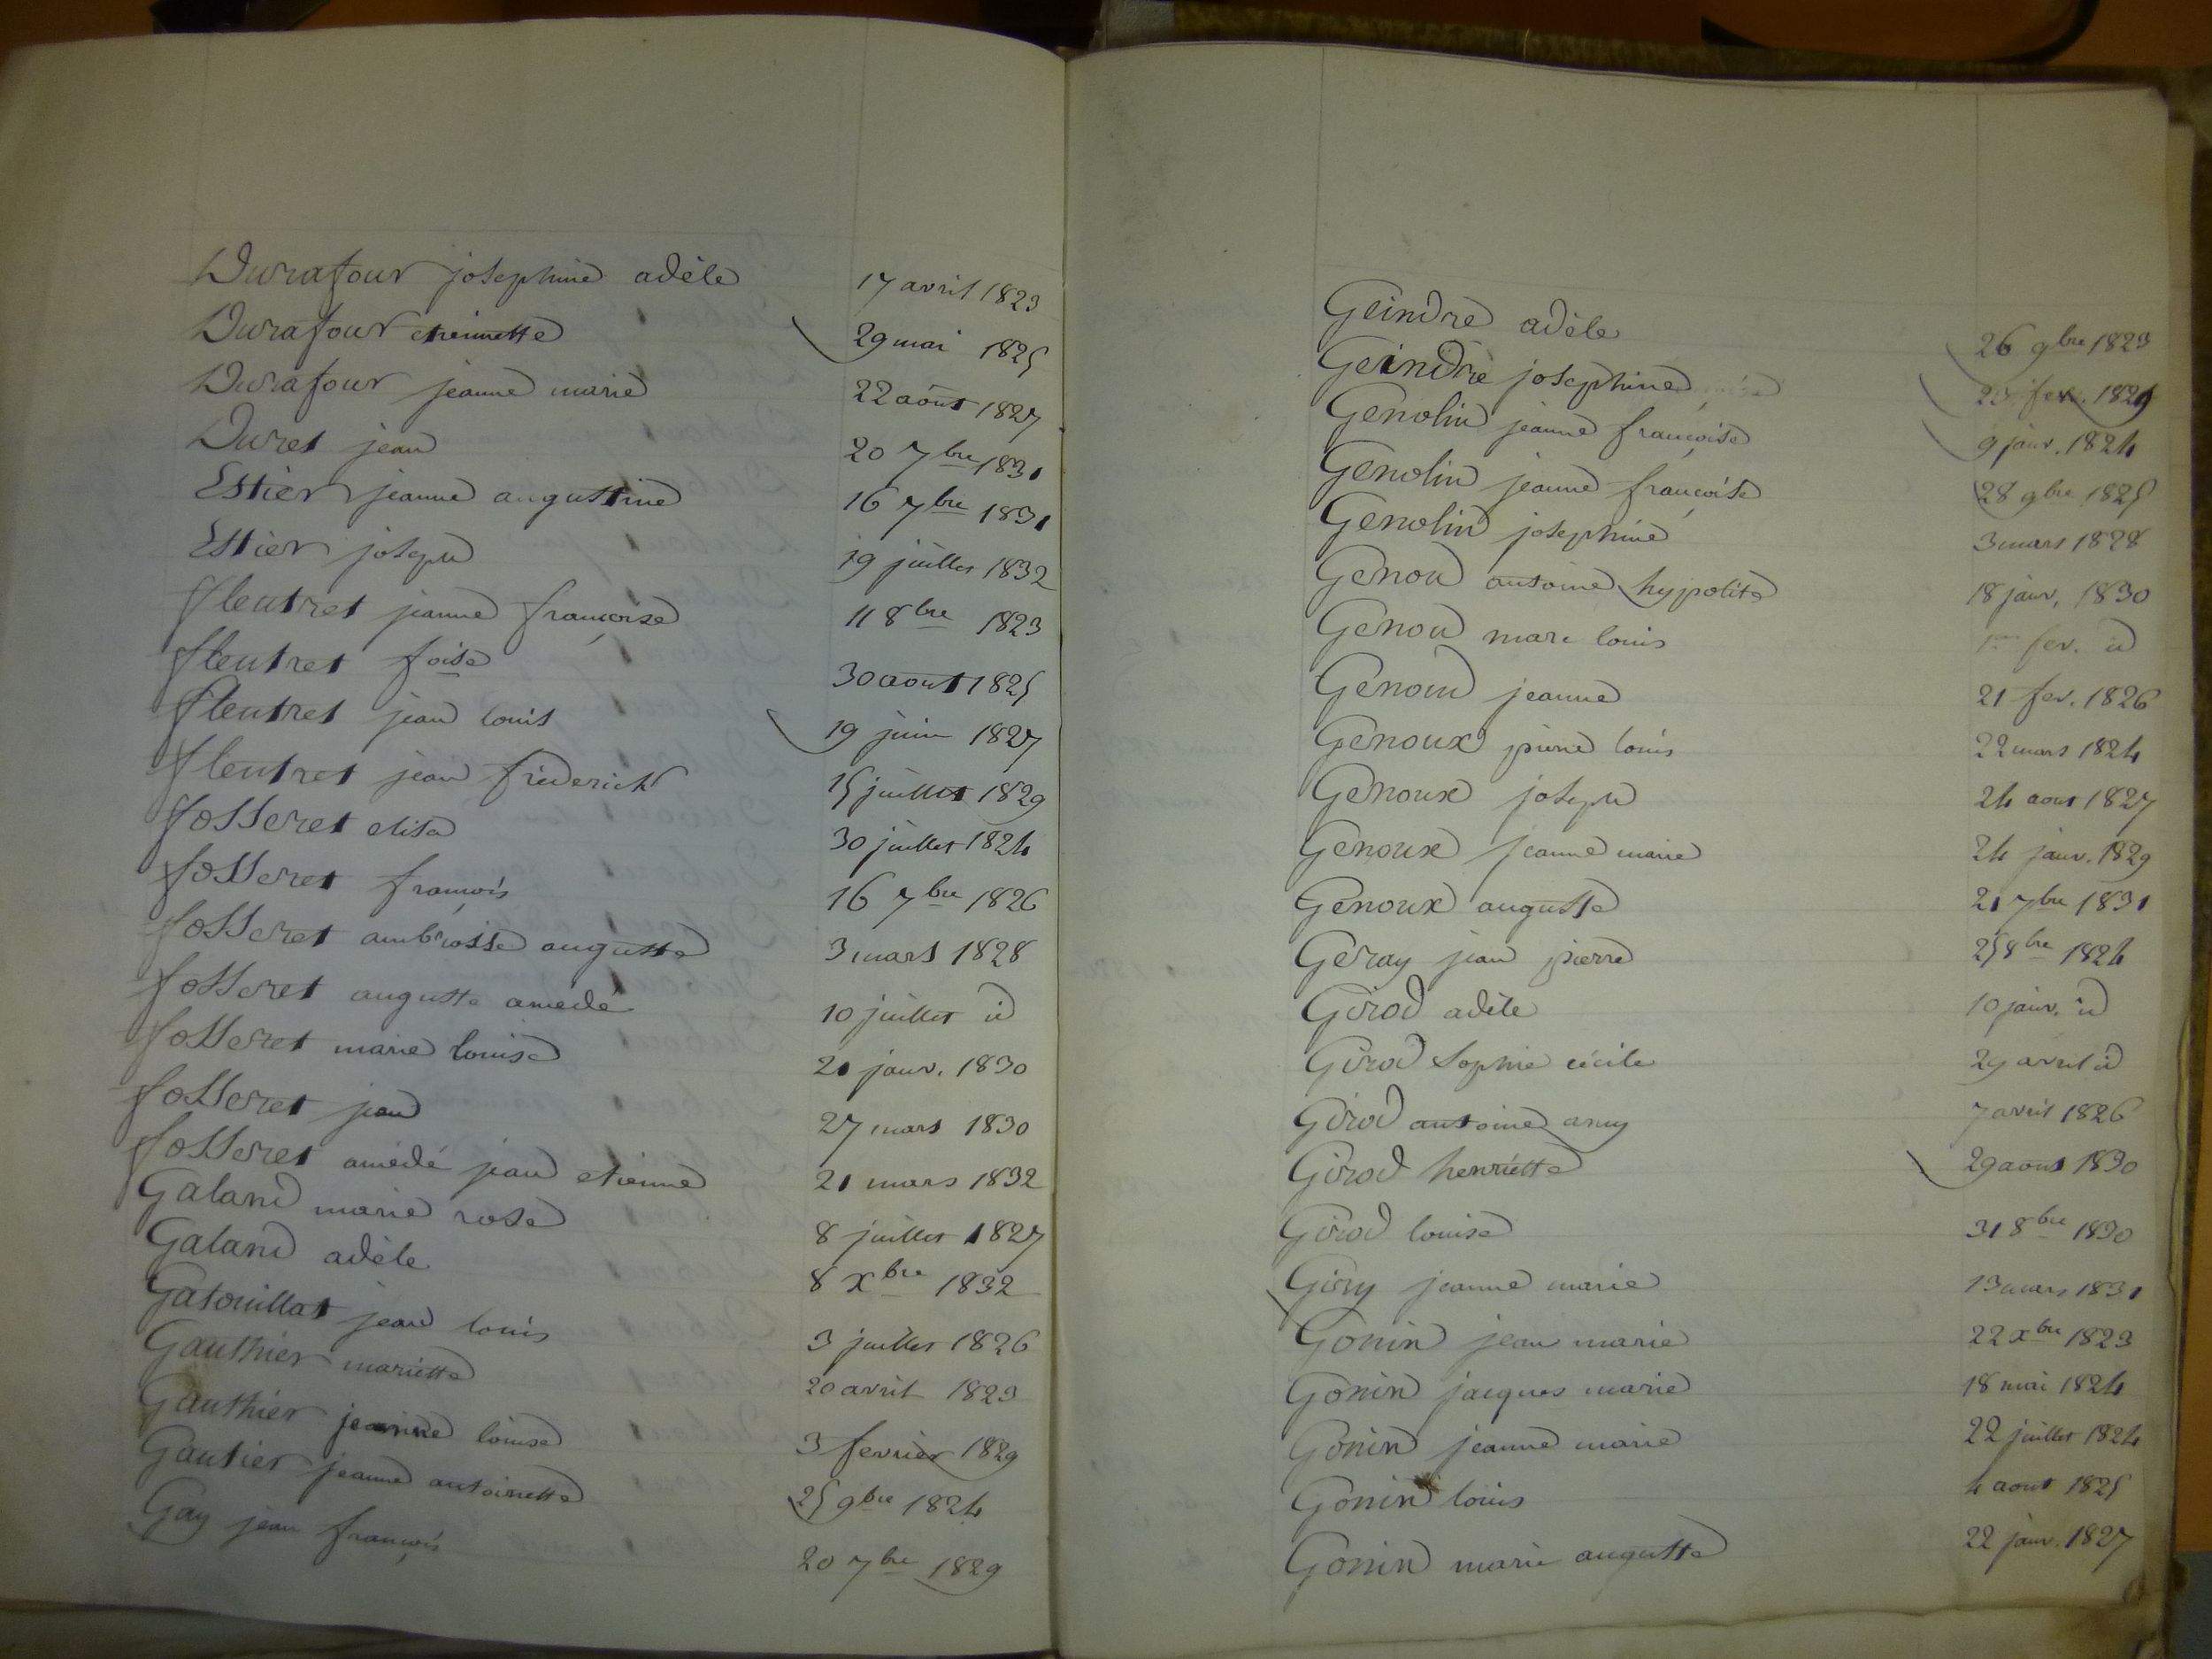 Durafour josephine adèle 17 avril 1823
Durafour etiennette 29 mai 1825
Durafour jeanne marie 22 août 1827
Duret jean 20 7bre 1831
Estier jeanne augustine 16 7bre 1831
Estier joseph 19 juillet 1832
fleutret jeanne françoise 11 8bre 1823
fleutret foise 30 aout 1825
fleutret jean louis 19 juin 1827
fleutret jean frederick 15 juillet 1829
fosseret elisa 30 juillet 1824
fosseret françois 16 7bre 1826
fosseret ambroise auguste 3 mars 1828
fosseret auguste amedé 10 juillet id
fosseret marie louise 21 janv. 1830
fosseret jean 27 mars 1830
fosseret amédé jean etienne 21 mars 1832
Galand marie rose 8 juillet 1827
Galand adèle 8 xbre 1832
Gatouillat jean louis 3 juillet 1826
Gauthier mariette 20 avril 1823
Gauthier jeanne louise 3 fevrier 1829
Gautier jeanne antoinette 25 9bre 1824
Gay jean françois 20 7bre 1829
Geindre adèle 26 9bre 1823
Geindre josephine fev. 1829
Genolin jeanne françoise 9 janv. 1824
Genolin jeanne françoise 28 9bre 1825
Genolin josephine 3 mars 1828
Genou antoine hypolite 18 janv. 1830
Genou marc louis 1er fev. id
Genoud jeanne 21 fev. 1826
Genoux pierre louis 22 mars 1824
Genoux joseph 24 aout 1827
Genoux jeanne marie 24 janv. 1829
Genoux auguste 21 7bre 1831
Geray jean pierre 25 8bre 1824
Girod adèle 10 janv. id
Girod sophie cécile 29 avril id
Girod antoine amy 7 avril 1826
Girod henriette 29 aout 1830
Girod louise 31 8bre 1830
Giry jeanne marie 13 mars 1831
Gonin jean marie 22 xbre 1823
Gonin jacques marie 18 mai 1824
Gonin jeanne marie 22 juillet 1824
Gonin louis 4 aout 1825
Gonin marie auguste 22 janv. 1827